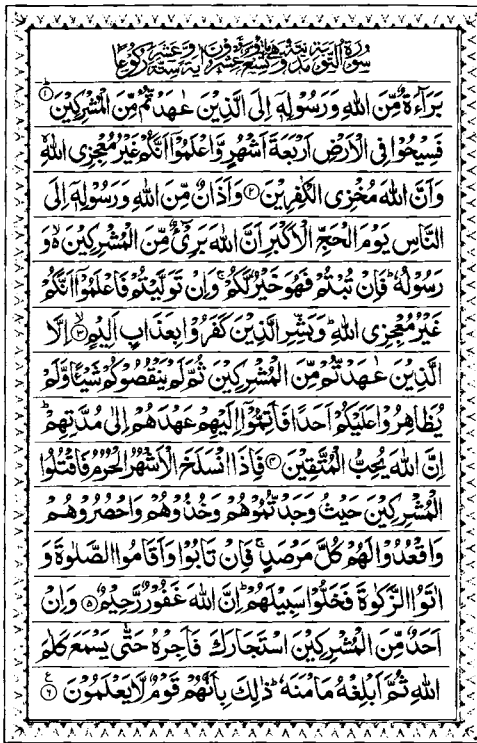 سورة التوبة مدنية وهي مائة وتسع وعشرون آية وستة عشر ركوعا
بَرَآءَةٌ مِّنَ اللّٰهِ وَرَسُوْلِهٖٓ اِلَى الَّذِيْنَ عٰهَدْتُّمْ مِّنَ الْمُشْرِكِيْنَ ؕ﴿۱﴾
فَسِيْحُوْا فِى الْاَرْضِ اَرْبَعَةَ اَشْهُرٍ وَّاعْلَمُوْٓا اَنَّكُمْ غَيْرُ مُعْجِزِى اللّٰهِ
وَاَنَّ اللّٰهَ مُخْزِى الْكٰفِرِيْنَ ﴿۲﴾ وَاَذَانٌ مِّنَ اللّٰهِ وَرَسُوْلِهٖٓ اِلَى
النَّاسِ يَوْمَ الْحَجِّ الْاَكْبَرِ اَنَّ اللّٰهَ بَرِىْٓءٌ مِّنَ الْمُشْرِكِيْنَ ۙ۬ وَ
رَسُوْلُهٗ ؕ فَاِنْ تُبْتُمْ فَهُوَ خَيْرٌ لَّكُمْ ۚ وَاِنْ تَوَلَّيْتُمْ فَاعْلَمُوْٓا اَنَّكُمْ
غَيْرُ مُعْجِزِى اللّٰهِ ؕ وَبَشِّرِ الَّذِيْنَ كَفَرُوْا بِعَذَابٍ اَلِيْمٍ ۙ﴿۳﴾ اِلَّا
الَّذِيْنَ عٰهَدْتُّمْ مِّنَ الْمُشْرِكِيْنَ ثُمَّ لَمْ يَنْقُصُوْكُمْ شَيْـًٔا وَّلَمْ
يُظَاهِرُوْا عَلَيْكُمْ اَحَدًا فَاَتِمُّوْٓا اِلَيْهِمْ عَهْدَهُمْ اِلٰى مُدَّتِهِمْ ؕ
اِنَّ اللّٰهَ يُحِبُّ الْمُتَّقِيْنَ ﴿۴﴾ فَاِذَا انْسَلَخَ الْاَشْهُرُ الْحُرُمُ فَاقْتُلُوا
الْمُشْرِكِيْنَ حَيْثُ وَجَدْتُّمُوْهُمْ وَخُذُوْهُمْ وَاحْصُرُوْهُمْ
وَاقْعُدُوْا لَهُمْ كُلَّ مَرْصَدٍ ۚ فَاِنْ تَابُوْا وَاَقَامُوا الصَّلٰوةَ وَ
اٰتَوُا الزَّكٰوةَ فَخَلُّوْا سَبِيْلَهُمْ ؕ اِنَّ اللّٰهَ غَفُوْرٌ رَّحِيْمٌ ﴿۵﴾ وَاِنْ
اَحَدٌ مِّنَ الْمُشْرِكِيْنَ اسْتَجَارَكَ فَاَجِرْهُ حَتّٰى يَسْمَعَ كَلٰمَ
اللّٰهِ ثُمَّ اَبْلِغْهُ مَاْمَنَهٗ ؕ ذٰلِكَ بِاَنَّهُمْ قَوْمٌ لَّا يَعْلَمُوْنَ ﴿۶﴾ ع